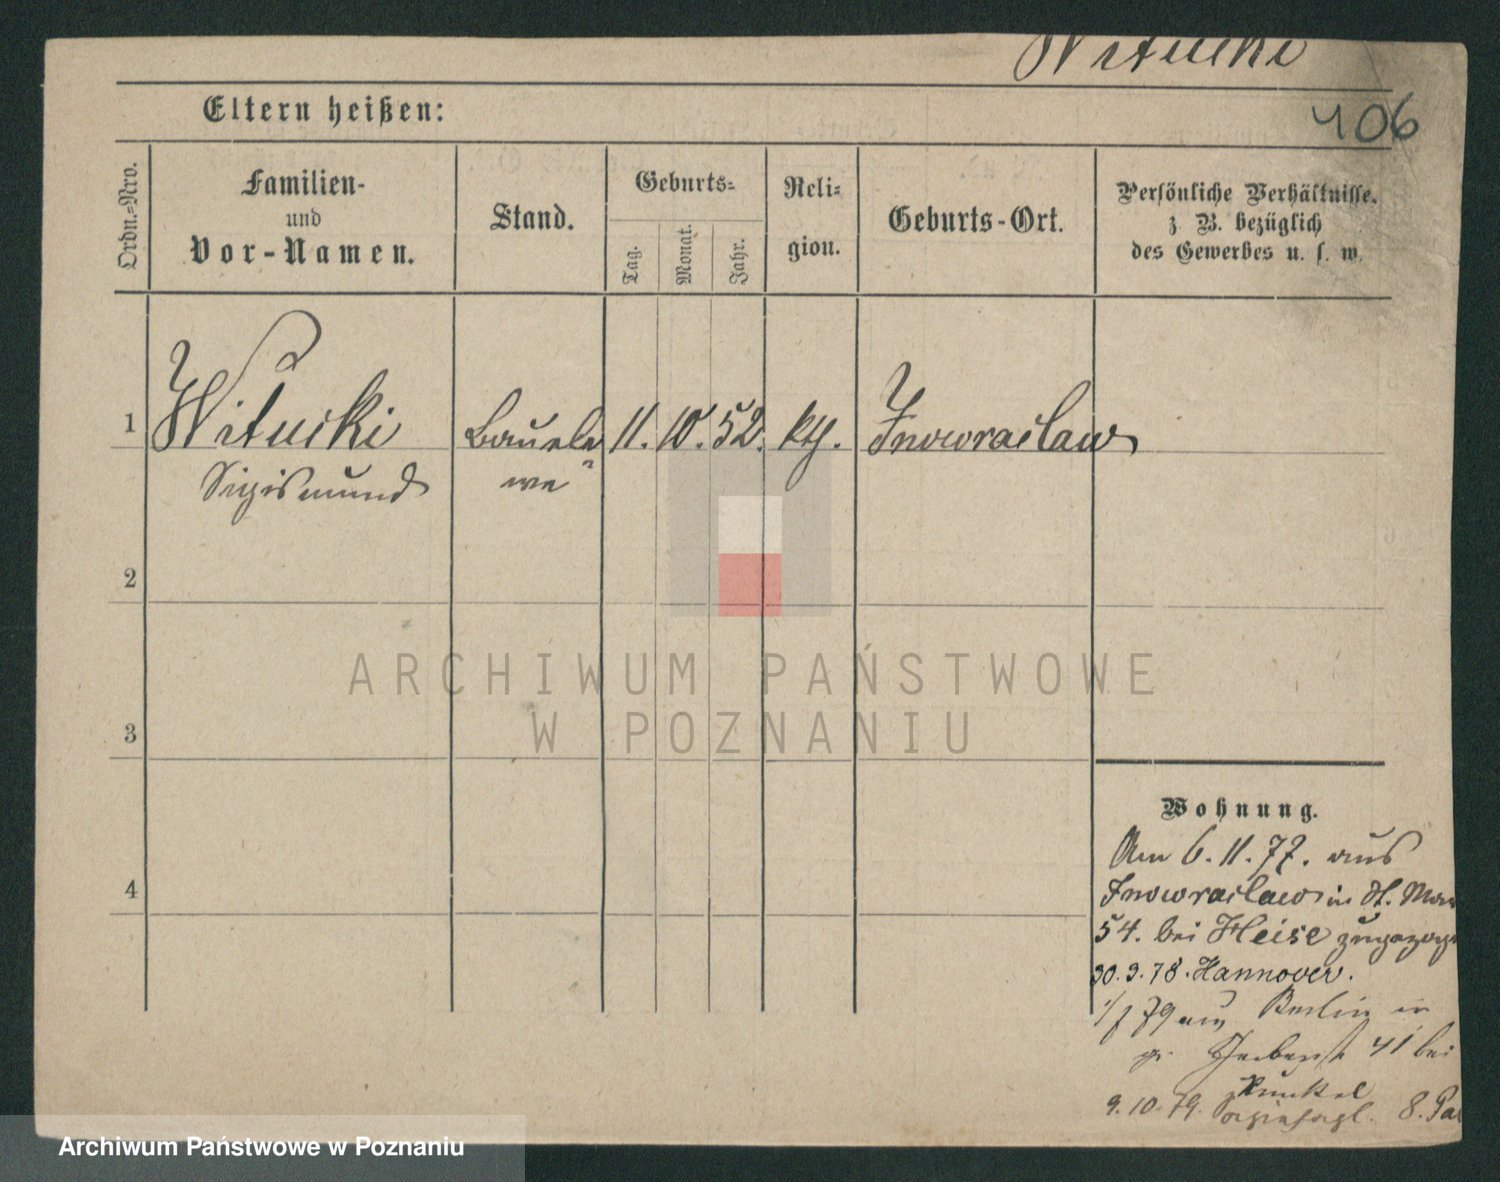 Witucki
406
Eltern heißen:
Ordn.-Nro.
Familien-
und
Vor-Namen.
Stand.
Geburts-
Tag.
Monat.
Jahr.
Reli-
gion.
Geburts-Ort.
Persönliche Verhältnisse,
z. B. bezüglich
des Gewerbes u. s. w.
1 Witucki Bauele 11. 10. 52. kth. Inowraclaw
Sigismund we
2
3
4
ARCHIWUM PAŃSTWOWE
W POZNANIU
Wohnung.
Am 6. 11. 77. aus
Inowraclaw in St. Mar
54. bei Heise zugezog
30. 3. 78. Hannover.
79 aus Berlin in
gr. 41 bei
Kunkel
9. 10. 79. 8.
Archiwum Państwowe w Poznaniu